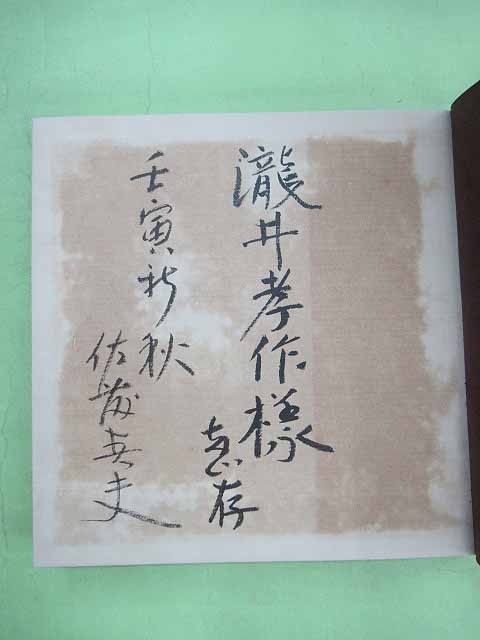 瀧井孝作樣
恵存
壬寅新秋
佐藤春夫